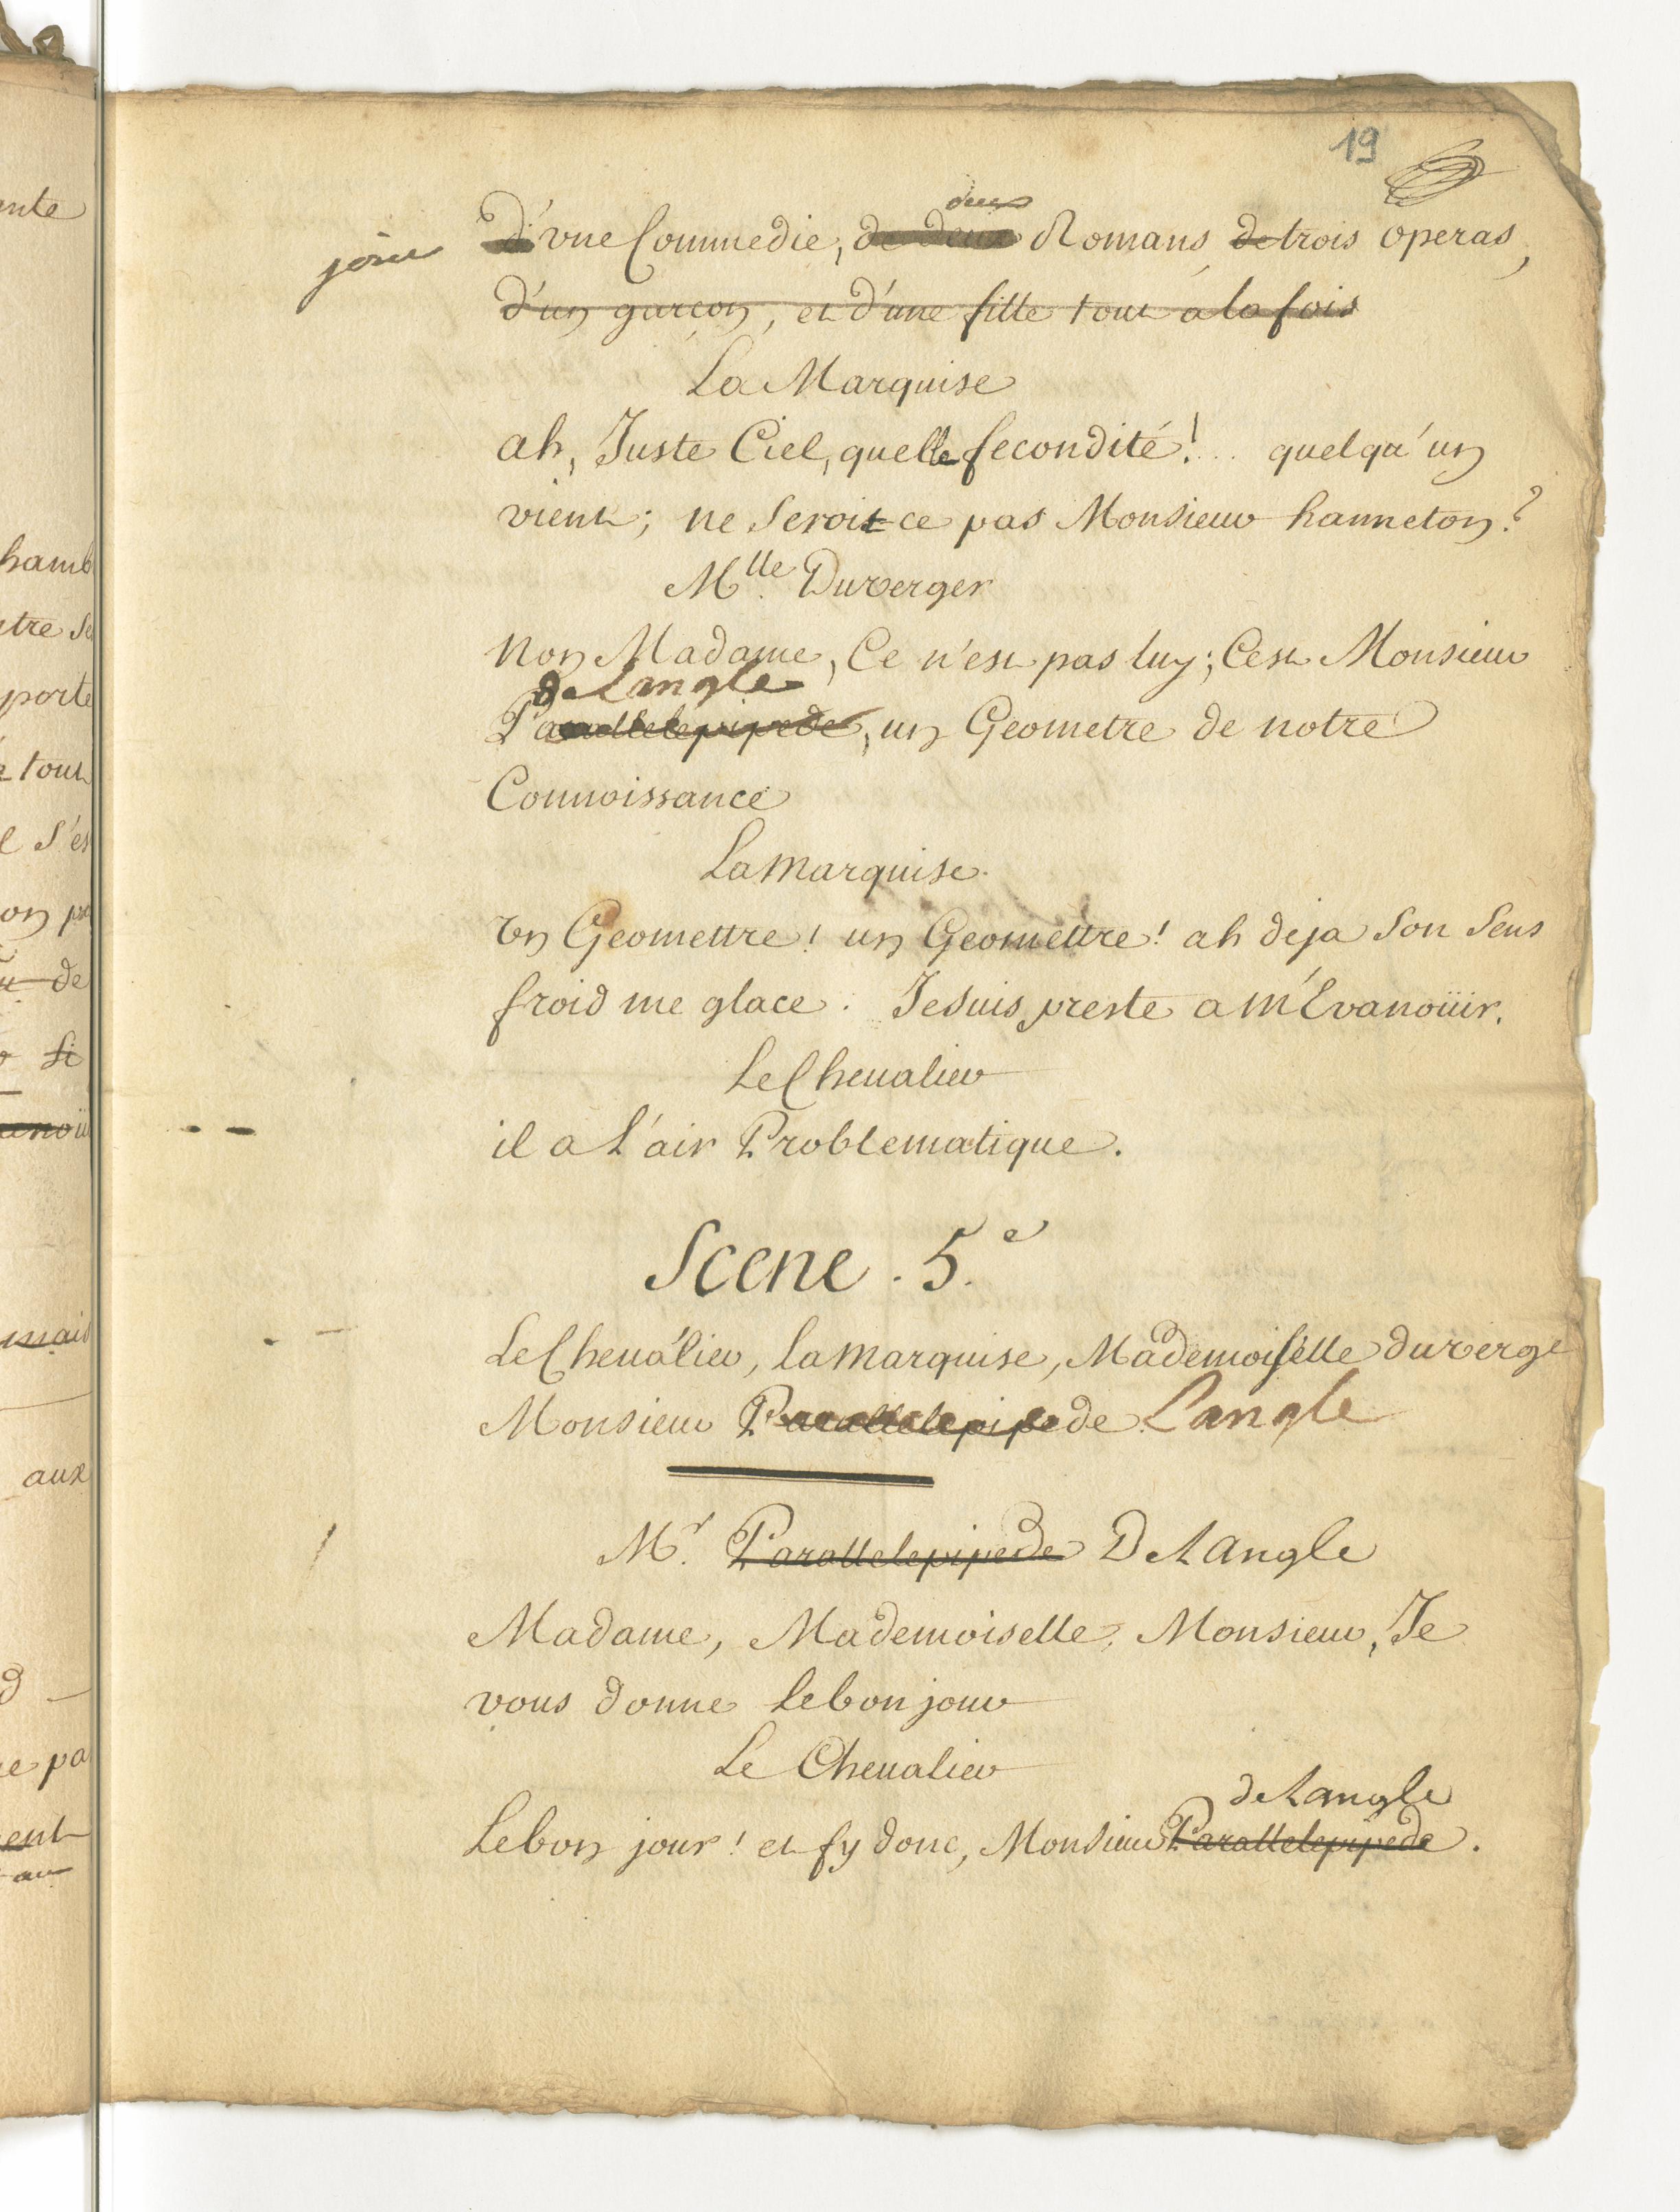 19
deux
d'vne Commedie, de deux Romans de trois operas,
d'un garçon, et d'une fille tout a la fois
La Marquise
ah, Juste Ciel, quelle fecondité!.. quelqu'un
vient; ne Seroit ce pas Monsieur hanneton?
Mlle. Duverger
Non Madame, Ce n'est pas luy; Cest Monsieur
de Langle
Parallelepipede, un Geometre de notre
Connoissance
La marquise.
Vn Geomettre! un Geomettre! ah deja Son Sens
froid me glace. Je suis preste a m'Evanoüir.
Le Cheualier
il a L'air Problematique.
Scene. 5.e
Le Cheualier, la marquise, Mademoiselle duverge
Monsieur Parallelepipede Langle
Mr. Parallelepipede De Langle
Madame, Mademoiselle, Monsieur, Je
vous donne le bon jour
Le Cheualier
de Langle
Le bon jour! et fy donc, Monsieur Parallelepipede.
ante
hamb
ntre Se
porte
tout
l S'es
on pa
de
si
anoüi
mais
aux
e pa
ent
au